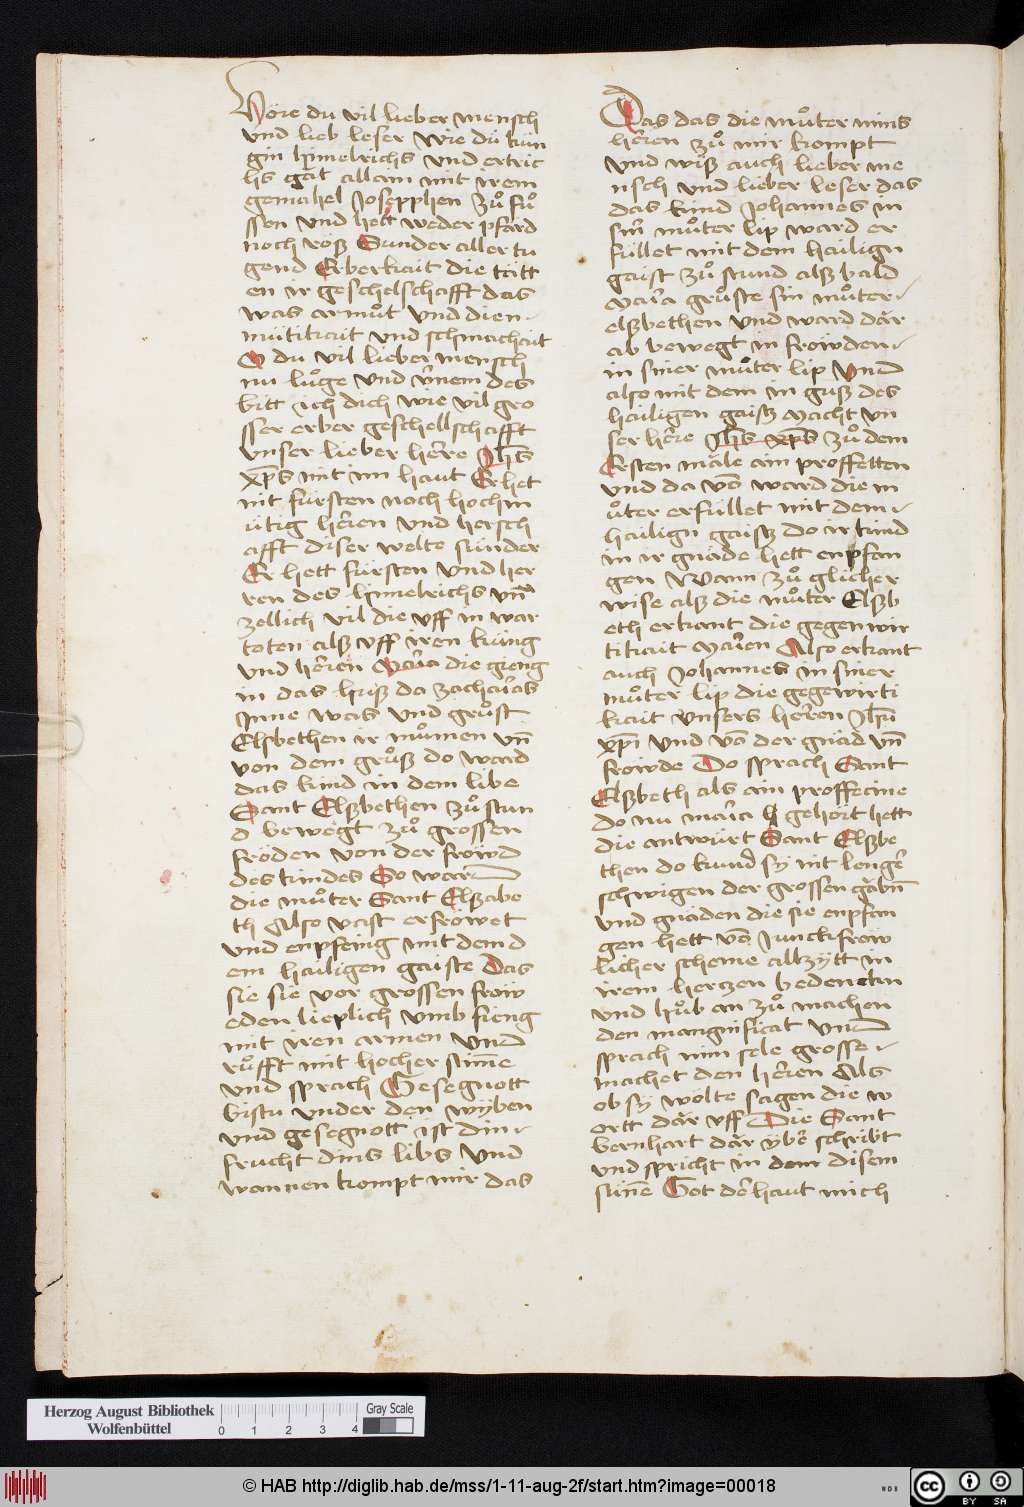 Höre du vil lieber mensch
vnd lieb leser wie dü kün
gin himelrichs vnd ertric
hs gat allain mit irem
gemahel Josepphen zuͦ fuͦ
ssen vnd hett weder pfärd
noch roß Sunder aller tu
gend Erberkait die tätt
en ir geschelschafft das
was armuͦt vnd dien
mütikait vnd schmachait
O du vil lieber mensch
nu luͦge vnd v̄nem des
bitt ich dich wie vil gro
sser erber geschellschafft
vnser lieber her̄e Jh̄s
xp̄s mit im haut Er het
nit fürsten noch hochm
ütig her̄en vnd hersch
afft diser welte sünder
Er hett fürsten vnd her
ren des himelrichs vn̄
zellich vil die vff in war
toten alß vff iren küng
vnd her̄en Mar̄ia die gieng
in das huß da zachar̄as
Inne was vnd gruͦst
Elsbethen ir muͦmen vn̄
von dem gruͦß do ward
das kind in dem libe
Sant Elßbethen zuͦ stun
d bewegt zuͦ grossen
fröden von der froiwd
des kindes So ward
die muͦter Sant Elßabe
th Also vast erfroiwet
vnd enpfeing mit dem d
em hailigen gaiste Das
sie sie vor grossen froiw
eden lieplich vmb fieng
mit iren armen vnd
ruͦfft mit hocher stim̄e
vnd sprach Gesegnott
bistu vnder den wyben
vnd gesegnott ist din
frucht dins libs vnd
wannen kompt mir das
Das das die muͦter mins
her̄en zuͦ mir kompt
vnd wiß auch lieber me
nsch vnd lieber leser das
das kind Johannes in
sin̄ muͦter lip ward er
füllet mit dem hailign
gaist zuͦ stund alß bald
Mar̄ia gruͦste sin muͦter
elßbethen vnd ward där
ab bewegt in froiwden
in siner muͦter lip vnd
also mit dem in guß des
hailigen gaistz macht vn
ser her̄e Jh̄s xp̄s zuͦ dem
Ersten mäle ain proffetten
vnd da vō ward die m
uͦter erfüllet mit dem
hailign gaistz do ir kind
in ir gnäde hett enpfan
gen Wann zuͦ glicher
wise alß die muͦter Elßb
eth erkant die gegenwir
tikait Mar̄ien Also erkant
auch Johannes in siner
muͦter lip die gegewirti
kait vnsers her̄en Jh̄u
xp̄i vnd vō der gnäd vn̄
froiwde Do sprach Sant
Elßbeth als ain proffecine
do nu mar̄ia gehört hett
die antwürt Sant Elßbe
then do kund sy nit lenger̄
schwigen der grossen gäbn̄
vnd gnäden die sie enpfan
gen hett vō Junckfrow
licher scheme allzytt in
irem hertzen bedencktin
vnd huͦb an zuͦ machen
den mangnificat vnd
sprach min sele grosse
machet den her̄en Als
ob sy wölte sagen die w
ortt där vff Die Sant
bernhart där yber̄ schribt
vnd spricht in dem disem
sin̄e Got der̄ haut mich
Herzog August Bibliothek
Wolfenbüttel
0 1 2 3 4
Gray Scale
© HAB http://diglib.hab.de/mss/1-11-aug-2f/start.htm?image=00018
WDB
CC BY SA